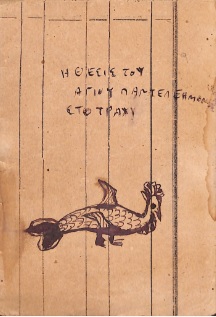 Η ΘΕΣΙΣ ΤΟΥ
ΑΓΙΟΥ ΠΑΝΤΕΛΕΗΜΟΝΟΣ
ΣΤΟ ΤΡΑΧΥ